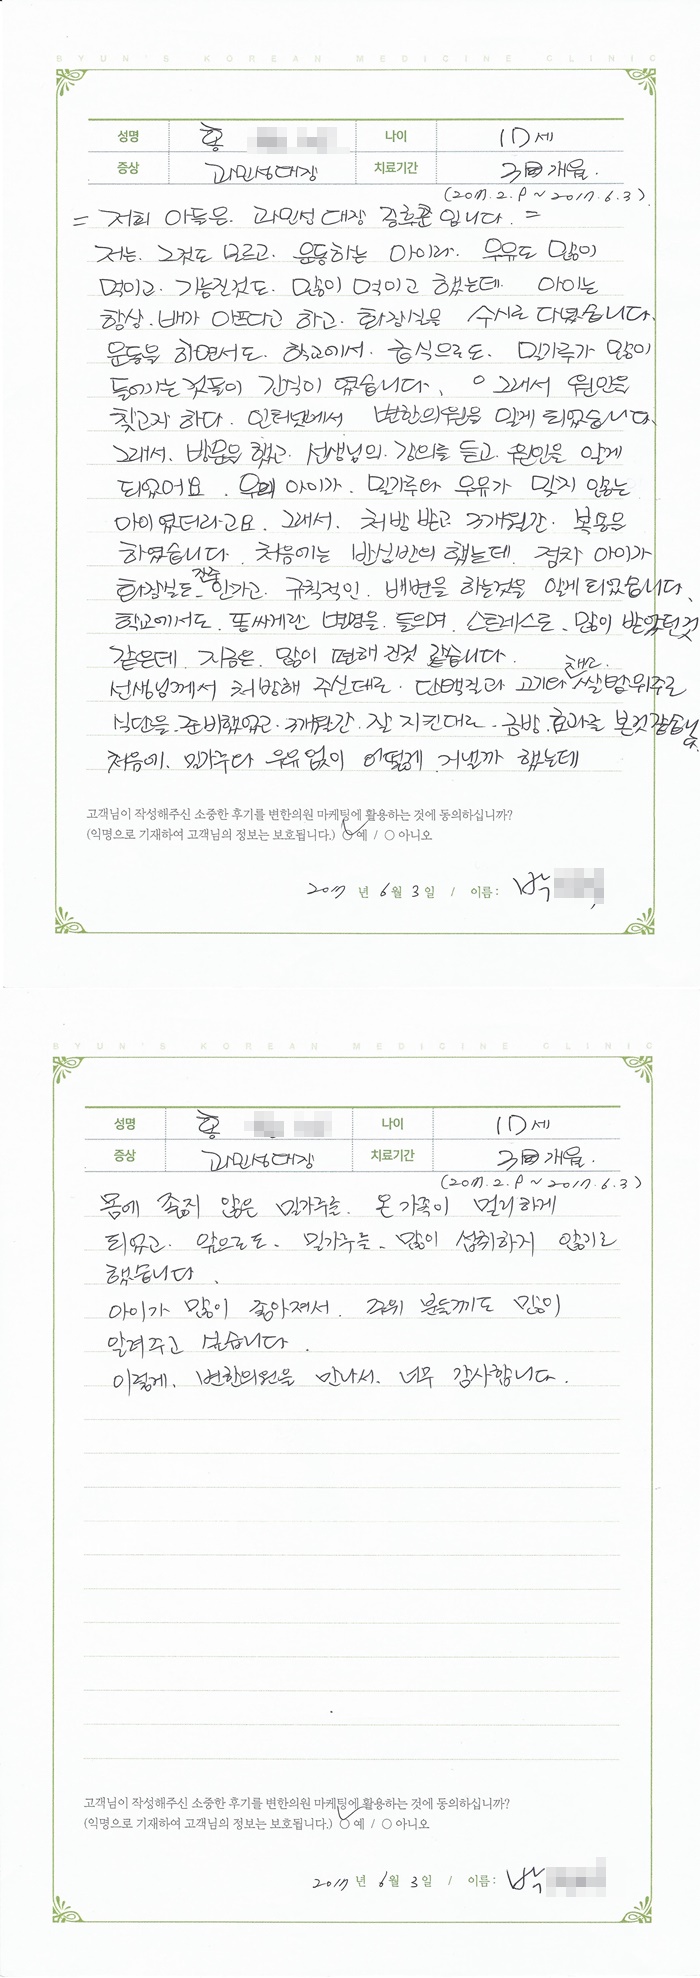 BYUN'S KOREAN MEDICINE CLINIC
성명 홍 나이 10세
증상 과민성대장 치료기간 3개월.
(2017. 2. 8 ~ 2017. 6. 3)
= 저희 아들은. 과민성 대장 증후군 입니다. =
저는. 그것도 모르고. 운동하는 아이라. 우유도 많이
먹이고. 기능진것도. 많이 먹이고 했는데. 아이는
항상. 배가 아프다고 하고. 화장실을 수시로 다녔습니다.
운동을 하면서도. 학교에서. 급식으로도. 밀가루가 많이
들어가는 것들이 간식이 였습니다. 그래서 원인을
찾고자 하다. 인터넷에서 변한의원을 알게 되었습니다.
그래서. 방문을 했고. 선생님의. 강의를 듣고. 원인을 알게
되었어요. 우리 아이가. 밀가루와 우유가 맞지 않는
아이 였더라고요. 그래서. 처방 받고 3개월간. 복용을
하였습니다. 처음에는 반심반의 했는데. 점차 아이가
화장실도 자주 안가고. 규칙적인. 배변을 하는것을 알게 되었습니다.
학교에서도. 똥싸게란 별명을. 들으며. 스트레스도. 많이 받았던것
같은데. 지금은. 많이 편해 진것 같습니다.
선생님께서 처방해 주신대로. 단백질과 고기와 채소, 쌀밥위주로
식단을. 준비했었고. 3개월간. 잘 지킨대로. 금방. 효과를 본것 같습니다.
처음에. 밀가루와 우유없이 어떻게. 지낼까 했는데
고객님이 작성해주신 소중한 후기를 변한의원 마케팅에 활용하는 것에 동의하십니까?
(익명으로 기재하여 고객님의 정보는 보호됩니다.) ○ 예 / ○ 아니오
2017 년 6 월 3 일 / 이름 : 박
BYUN'S KOREAN MEDICINE CLINIC
성명 홍 나이 10세
증상 과민성대장 치료기간 3개월.
(2017. 2. 8 ~ 2017. 6. 3)
몸에 좋지 않은 밀가루를. 온 가족이 멀리하게
되었고. 앞으로도. 밀가루를. 많이 섭취하지 않기로
했습니다.
아이가 많이 좋아져서. 주위 분들께도 많이
알려주고 싶습니다.
이렇게. 변한의원을 만나서. 너무 감사합니다.
고객님이 작성해주신 소중한 후기를 변한의원 마케팅에 활용하는 것에 동의하십니까?
(익명으로 기재하여 고객님의 정보는 보호됩니다.) ○ 예 / ○ 아니오
2017 년 6 월 3 일 / 이름 : 박